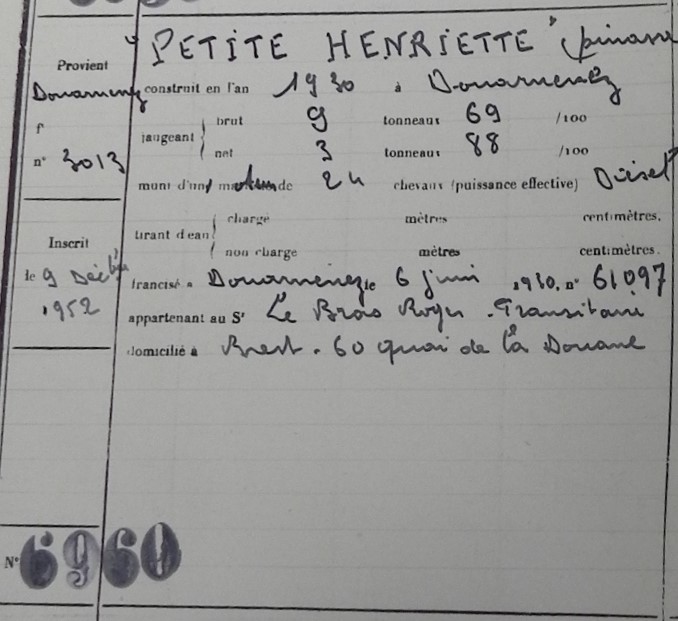 "PETITE HENRIETTE" (pinasse
Provient
Douarnenez
f°
n° 3013
construit en l'an 1930 à Douarnenez
jaugeant
brut 9 tonneaux 69 /100
net 3 tonneaux 88 /100
muni d'un moteur de 24 chevaux (puissance effective) Diesel
tirant d'eau
chargé mètres centimètres.
non chargé mètres centimètres.
Inscrit
le 9 Décbre
1952
francisé à Douarnenez le 6 juin 1930, n° 61097
appartenant au Sr Le Bras Roger - Transitaire
domicilié à Brest. 60 quai de la Douane
N° 6960